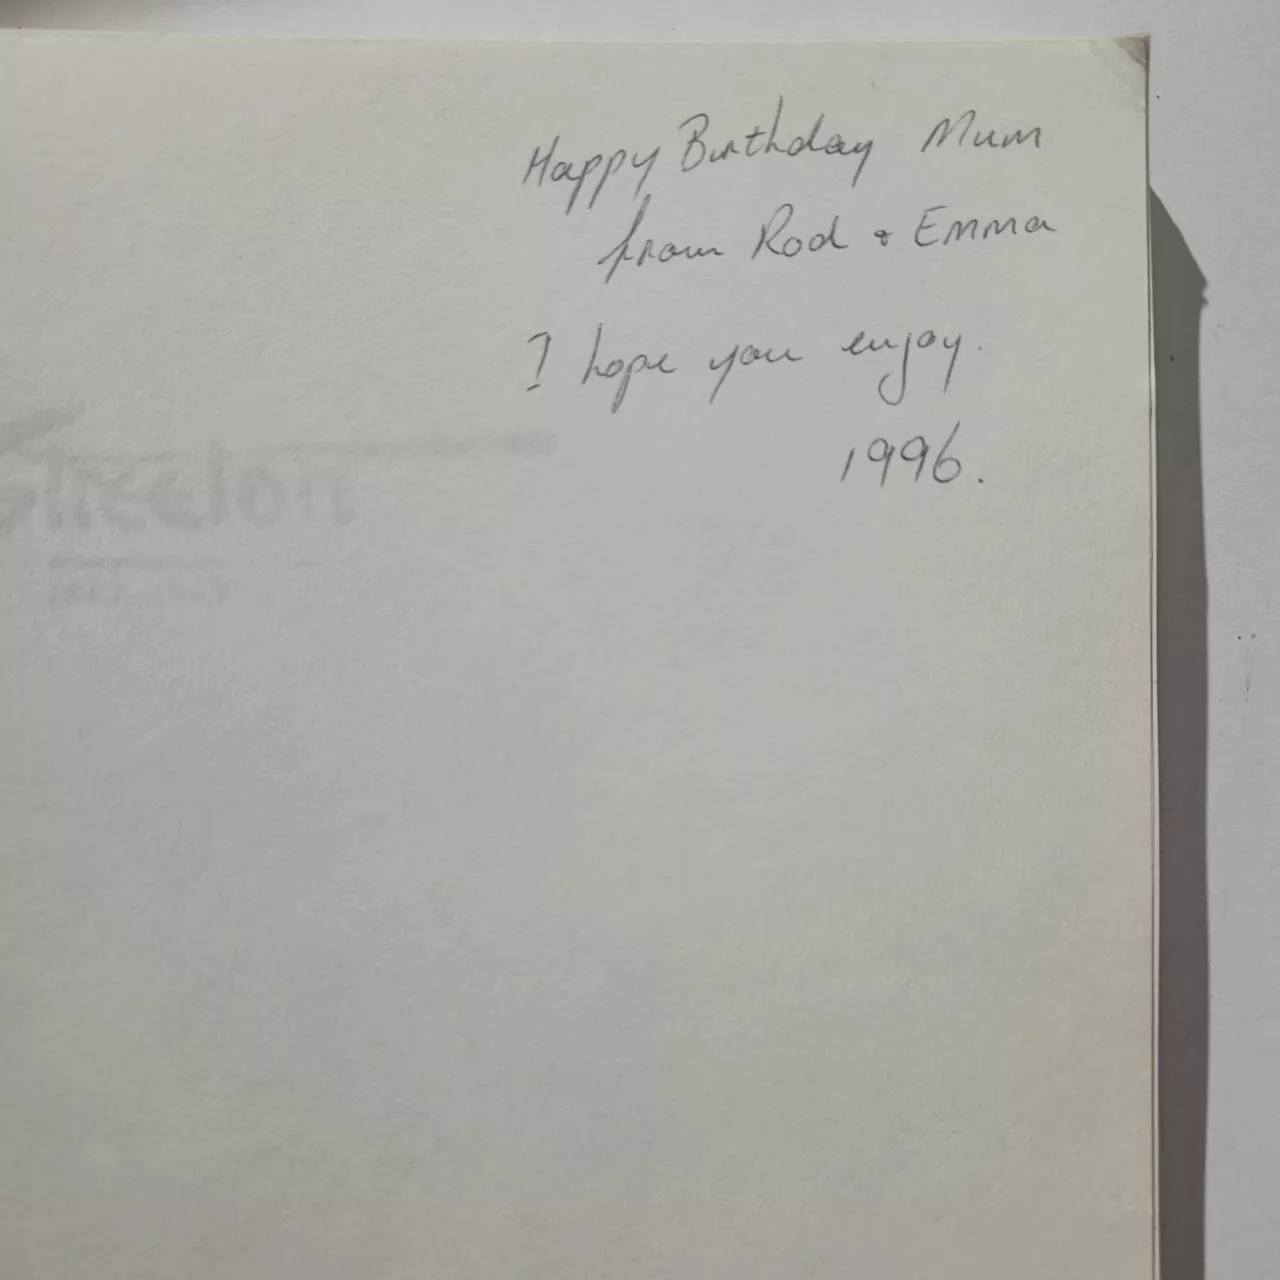 Happy Birthday Mum
from Rod & Emma
I hope you enjoy.
1996.
Streeton